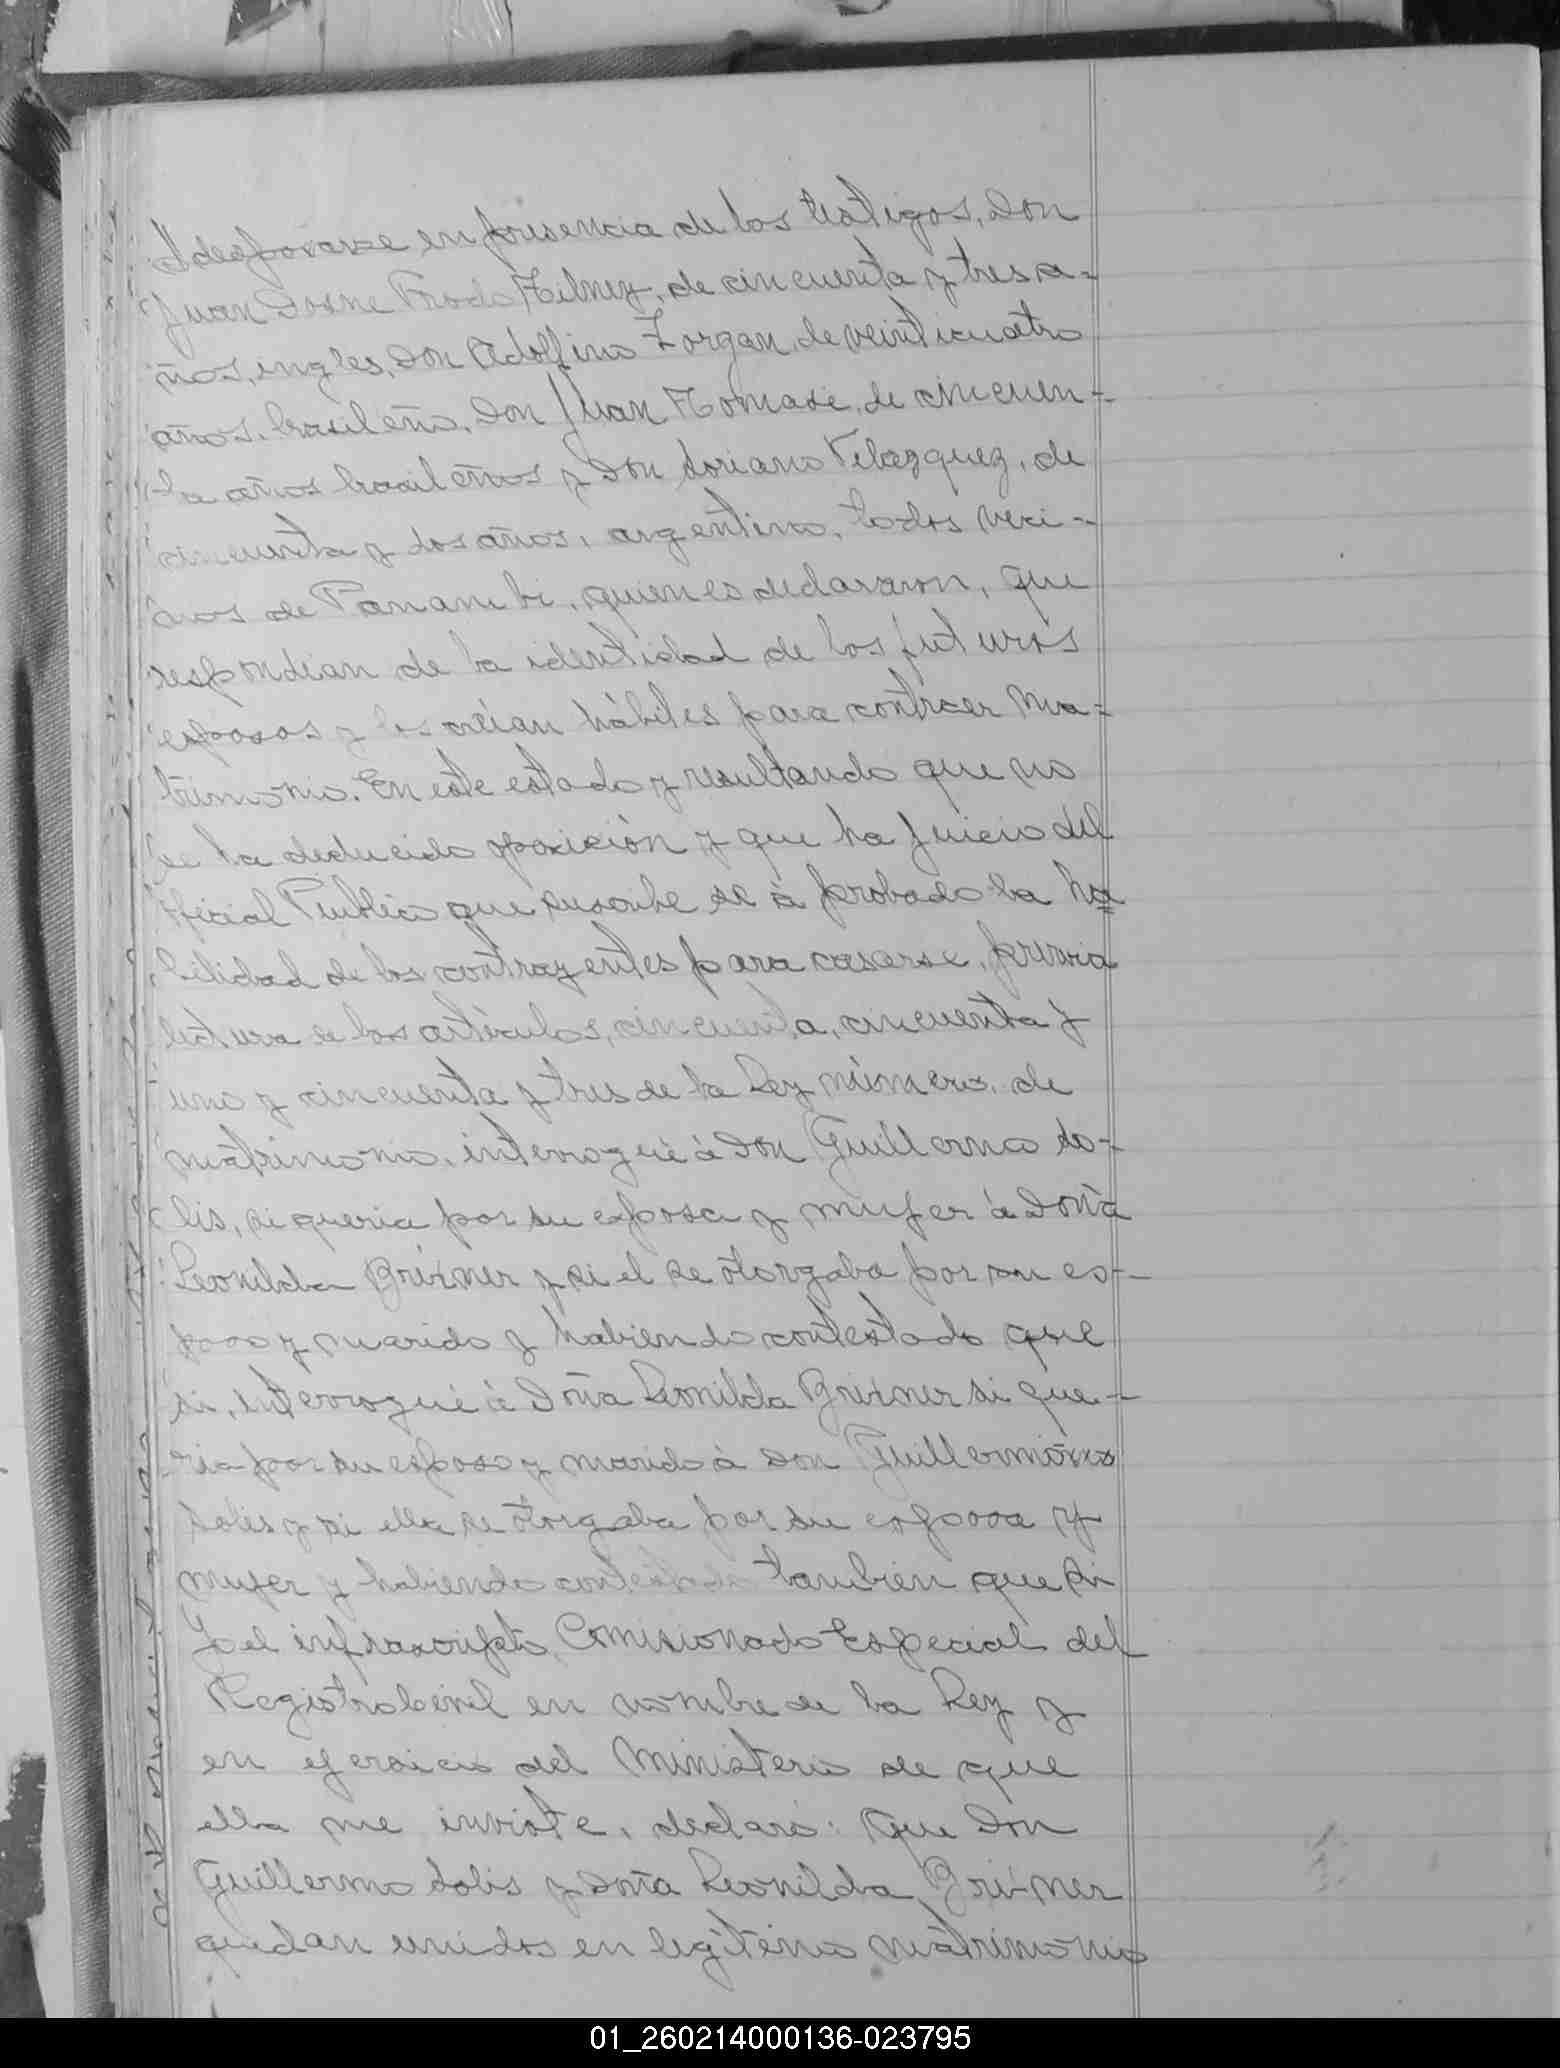 desposarse en presencia de los testigos, Don
Juan Prado de cincuenta y tres a-
ños, ingles, Don Adolfino Zorgan, de veinticuatro
años, brasileño, Don Juan Tomasi, de cincuen-
ta años brasileños y Don Soriano Velazquez, de
cincuenta y dos años, argentino, todos veci-
nos de Panambi, quienes declararon, que
respondian de la identidad de los futuros
esposos y los creian hábiles para contraer ma-
trimonio. En este estado y resultando que no
se ha deducido oposición y que ha juicio del
oficial Publico que suscribe se à probado la ha
bilidad de los contrayentes para casarse, previa
lectura de los artículos, cincuenta, cincuenta y
uno y cincuenta y tres de la Ley número, de
matrimonio, interrogué á Don Guillermo So-
lis, si queria por su esposa y mujer á Doña
Leonilda Brixner y si el se otorgaba por su es-
poso y marido y habiendo contestado que
si, interrogué á Doña Leonilda Brixner si que-
ria por su esposo y marido á Don
Solis y si ella se otorgaba por su esposa y
mujer y habiendo contestado tambien que si
Yo el infrascripto, Comisionado Especial del
Registro Civil en nombre de la Ley y
en ejercicio del Ministerio de que
ella me inviste, declaro: Que Don
Guillermo Solis y Doña Leonilda Brixner
quedan unidos en legitimo matrimonio
01_260214000136-023795